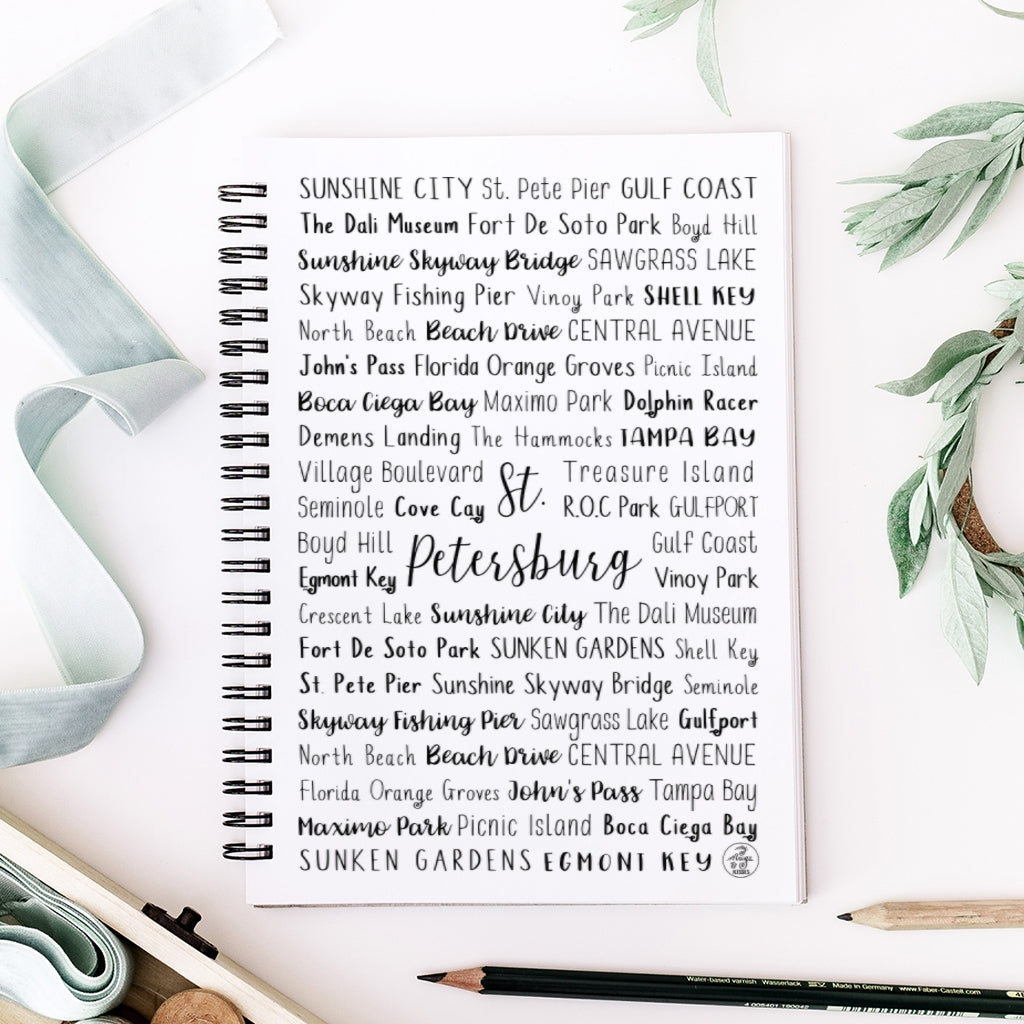 SUNSHINE CITY St. Pete Pier GULF COAST
The Dali Museum Fort De Soto Park Boyd Hill
Sunshine Skyway Bridge SAWGRASS LAKE
Skyway Fishing Pier Vinoy Park SHELL KEY
North Beach Beach Drive CENTRAL AVENUE
John's Pass Florida Orange Groves Picnic Island
Boca Ciega Bay Maximo Park Dolphin Racer
Demens Landing The Hammocks TAMPA BAY
Village Boulevard St. Treasure Island
Seminole Cove Cay R.O.C Park GULFPORT
Boyd Hill Petersburg Gulf Coast
Egmont Key Vinoy Park
Crescent Lake Sunshine City The Dali Museum
Fort De Soto Park SUNKEN GARDENS Shell Key
St. Pete Pier Sunshine Skyway Bridge Seminole
Skyway Fishing Pier Sawgrass Lake Gulfport
North Beach Beach Drive CENTRAL AVENUE
Florida Orange Groves John's Pass Tampa Bay
Maximo Park Picnic Island Boca Ciega Bay
SUNKEN GARDENS EGMONT KEY
KISSES
Water-based varnish Wasserlack Made in Germany www.Faber-Castell.com